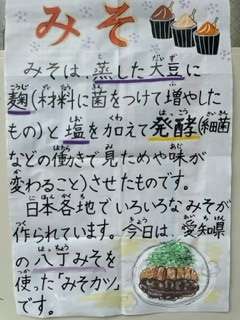 みそ
みそは、蒸した大豆に
麹(材料に菌をつけて増やした
もの)と塩を加えて発酵(細菌
などの働きで見ためや味が
変わること)させたものです。
日本各地でいろいろなみそが
作られています。今日は、愛知県
の八丁みそを
使った「みそカツ」
です。